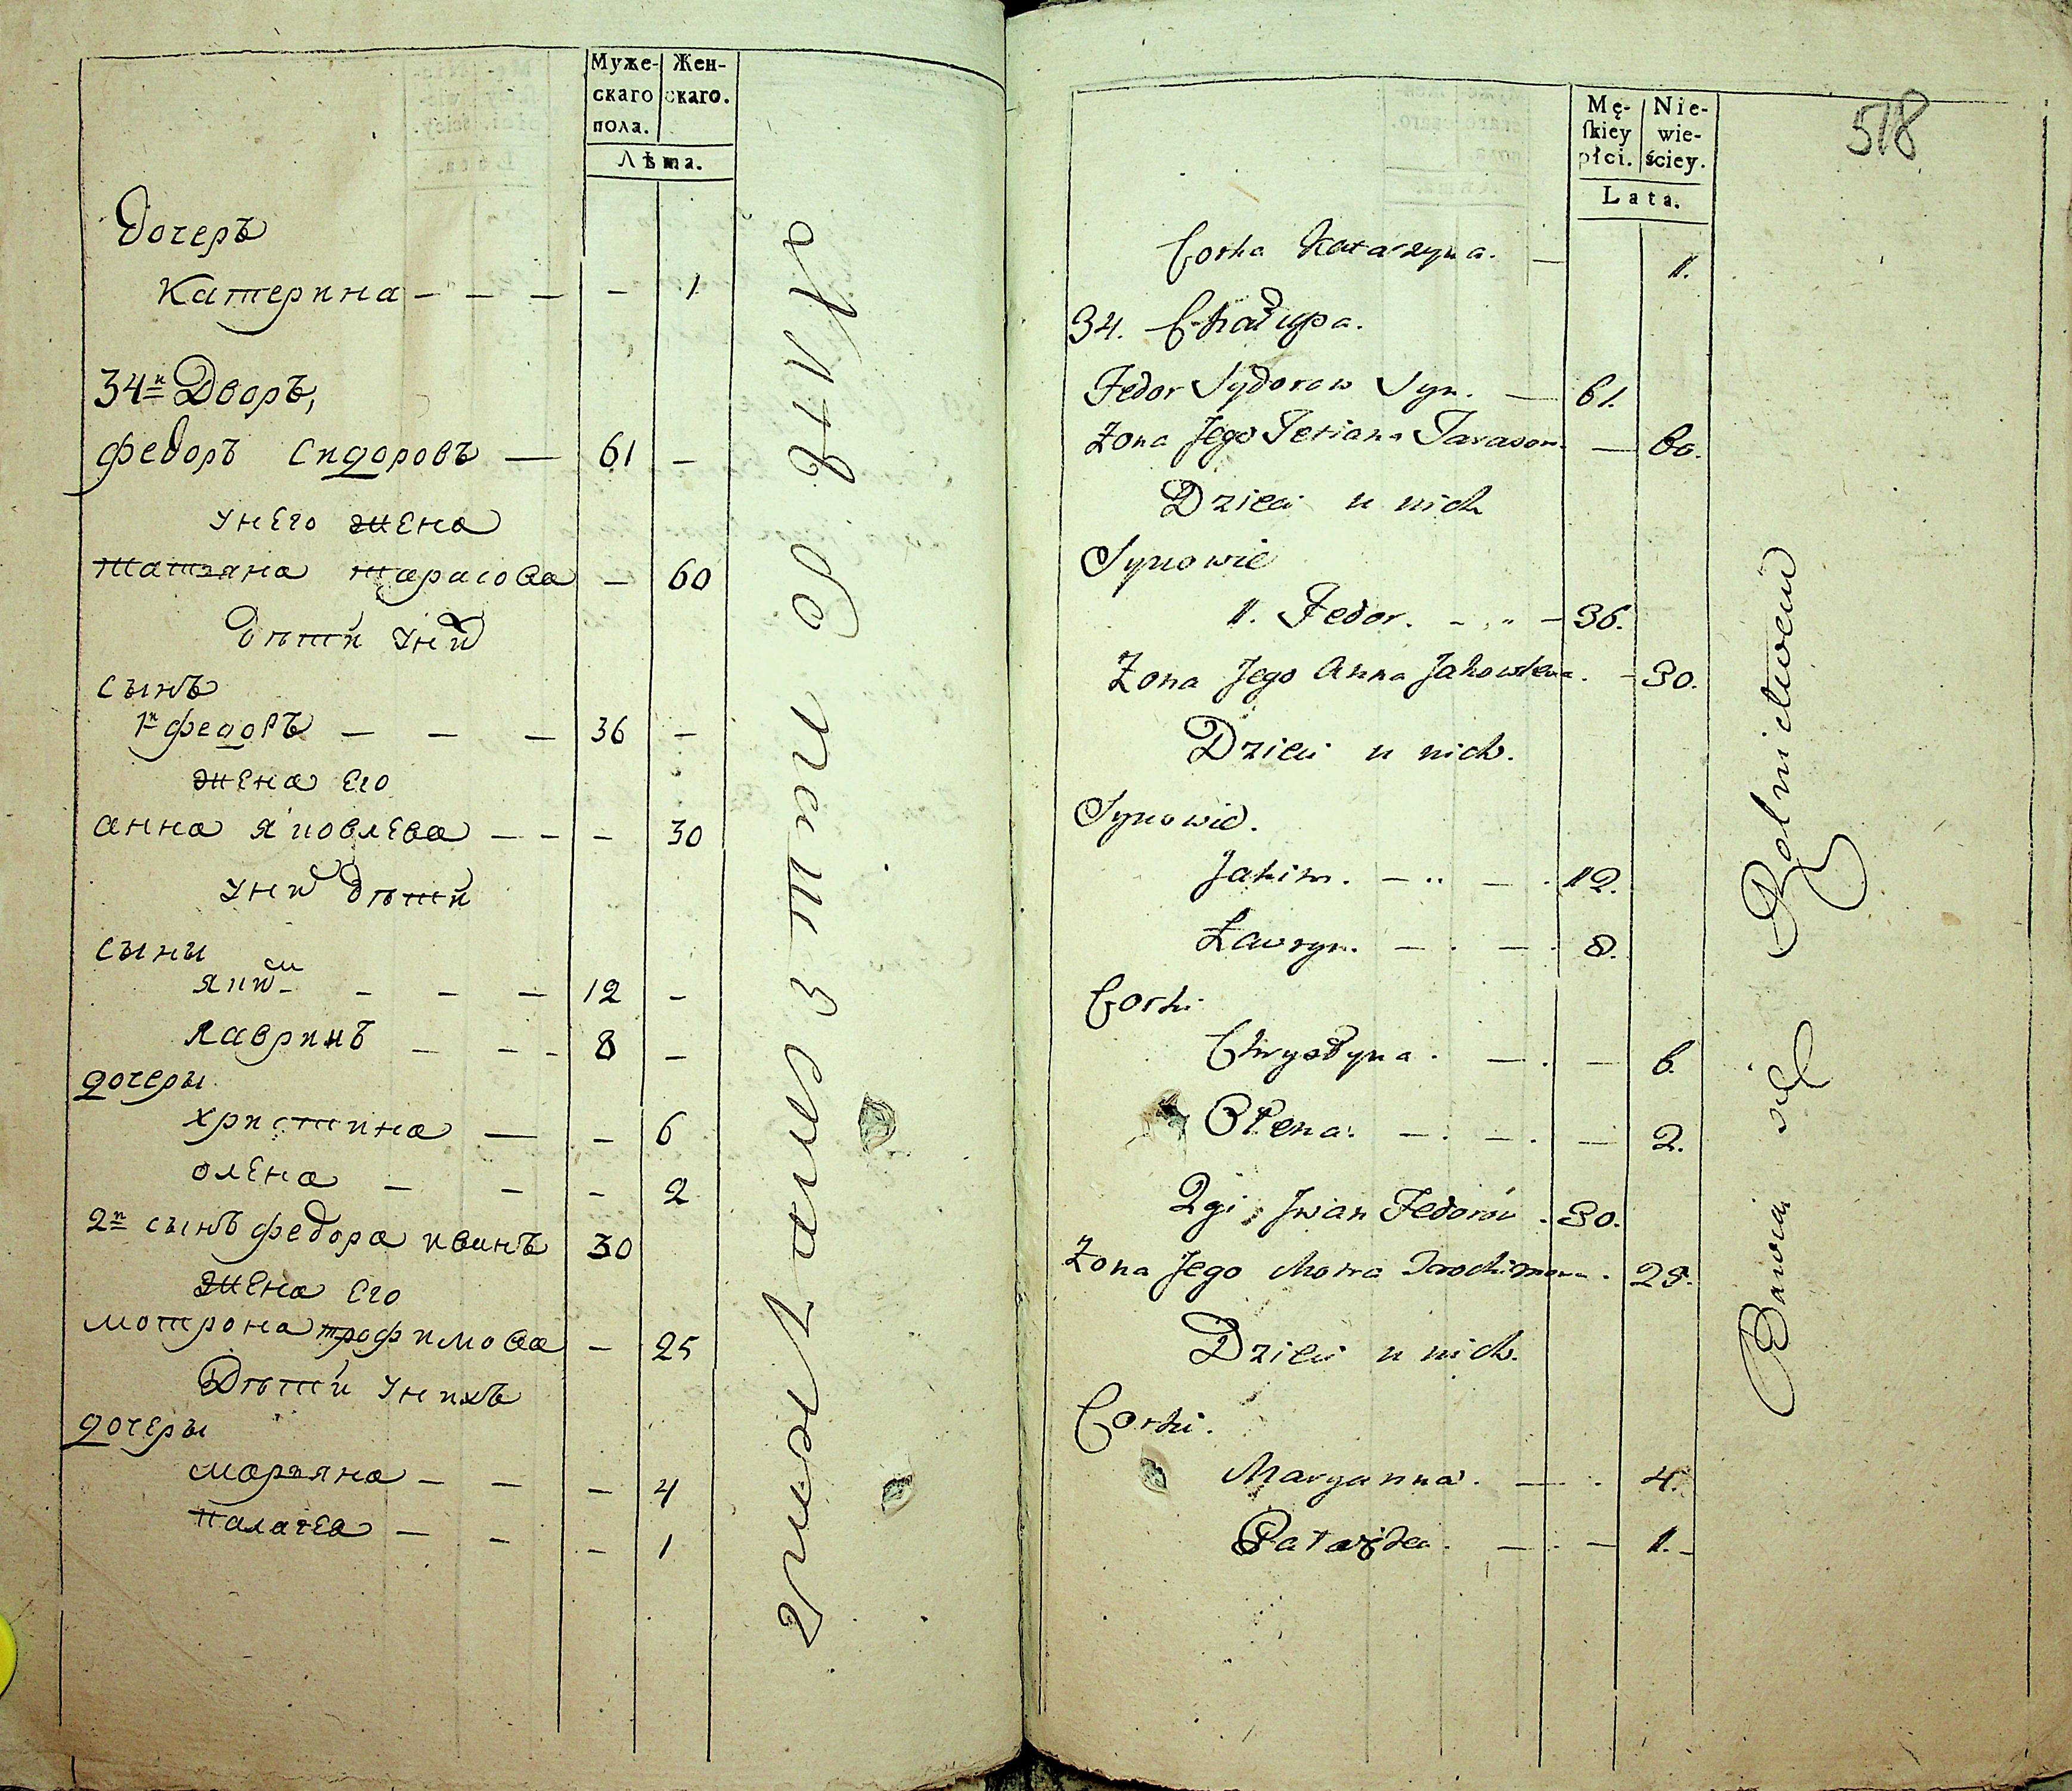 Муже- Жен-
скаго скаго.
пола.
Лѣта.
дочеръ
Катерина — — — — 1
34й Дворъ,
федоръ Сидоровъ — 61 —
унего жена
татъяна тарасова — 60
дѣтй уни
сынъ
1й федоръ — — — 36 —
жена его
анна яковлева — — — 30
уни дѣтй
сыны
яким — — — 12 —
лавринъ — — - 8 —
дочеры
христина — — 6
олена — — — 2
2й сынъ федора иванъ 30
жена его
мотрона трофимова — 25
Дѣтй унихъ
дочеры
марьяна — — — 4
палагея — — — 1
Mę- Nie-
ſkiey wie-
płci. ściey.
Lata.
518
Corka Katarzyna. — 1.
34. Chałupa.
Fedor Sydorow Syn. — 61.
Żona Jego Tetiana Tarasow. — 60.
Dzieci u nich
Synowie
1. Fedor. - „ - 36.
Żona Jego Anna Jakowlewa. - 30.
Dzieci u nich.
Synowie.
Jakim. — „ — . 12.
Ławryn. — . — . 8.
Corki
Chrystyna. — . — 6.
Ołena. — . — . — 2.
2gi Jwan Fedorów . 30.
Żona Jego Motra . 25.
Dzieci u nich.
Corki.
Maryanna. — . 4.
— . — 1. -
Bawią się Rolnictwem